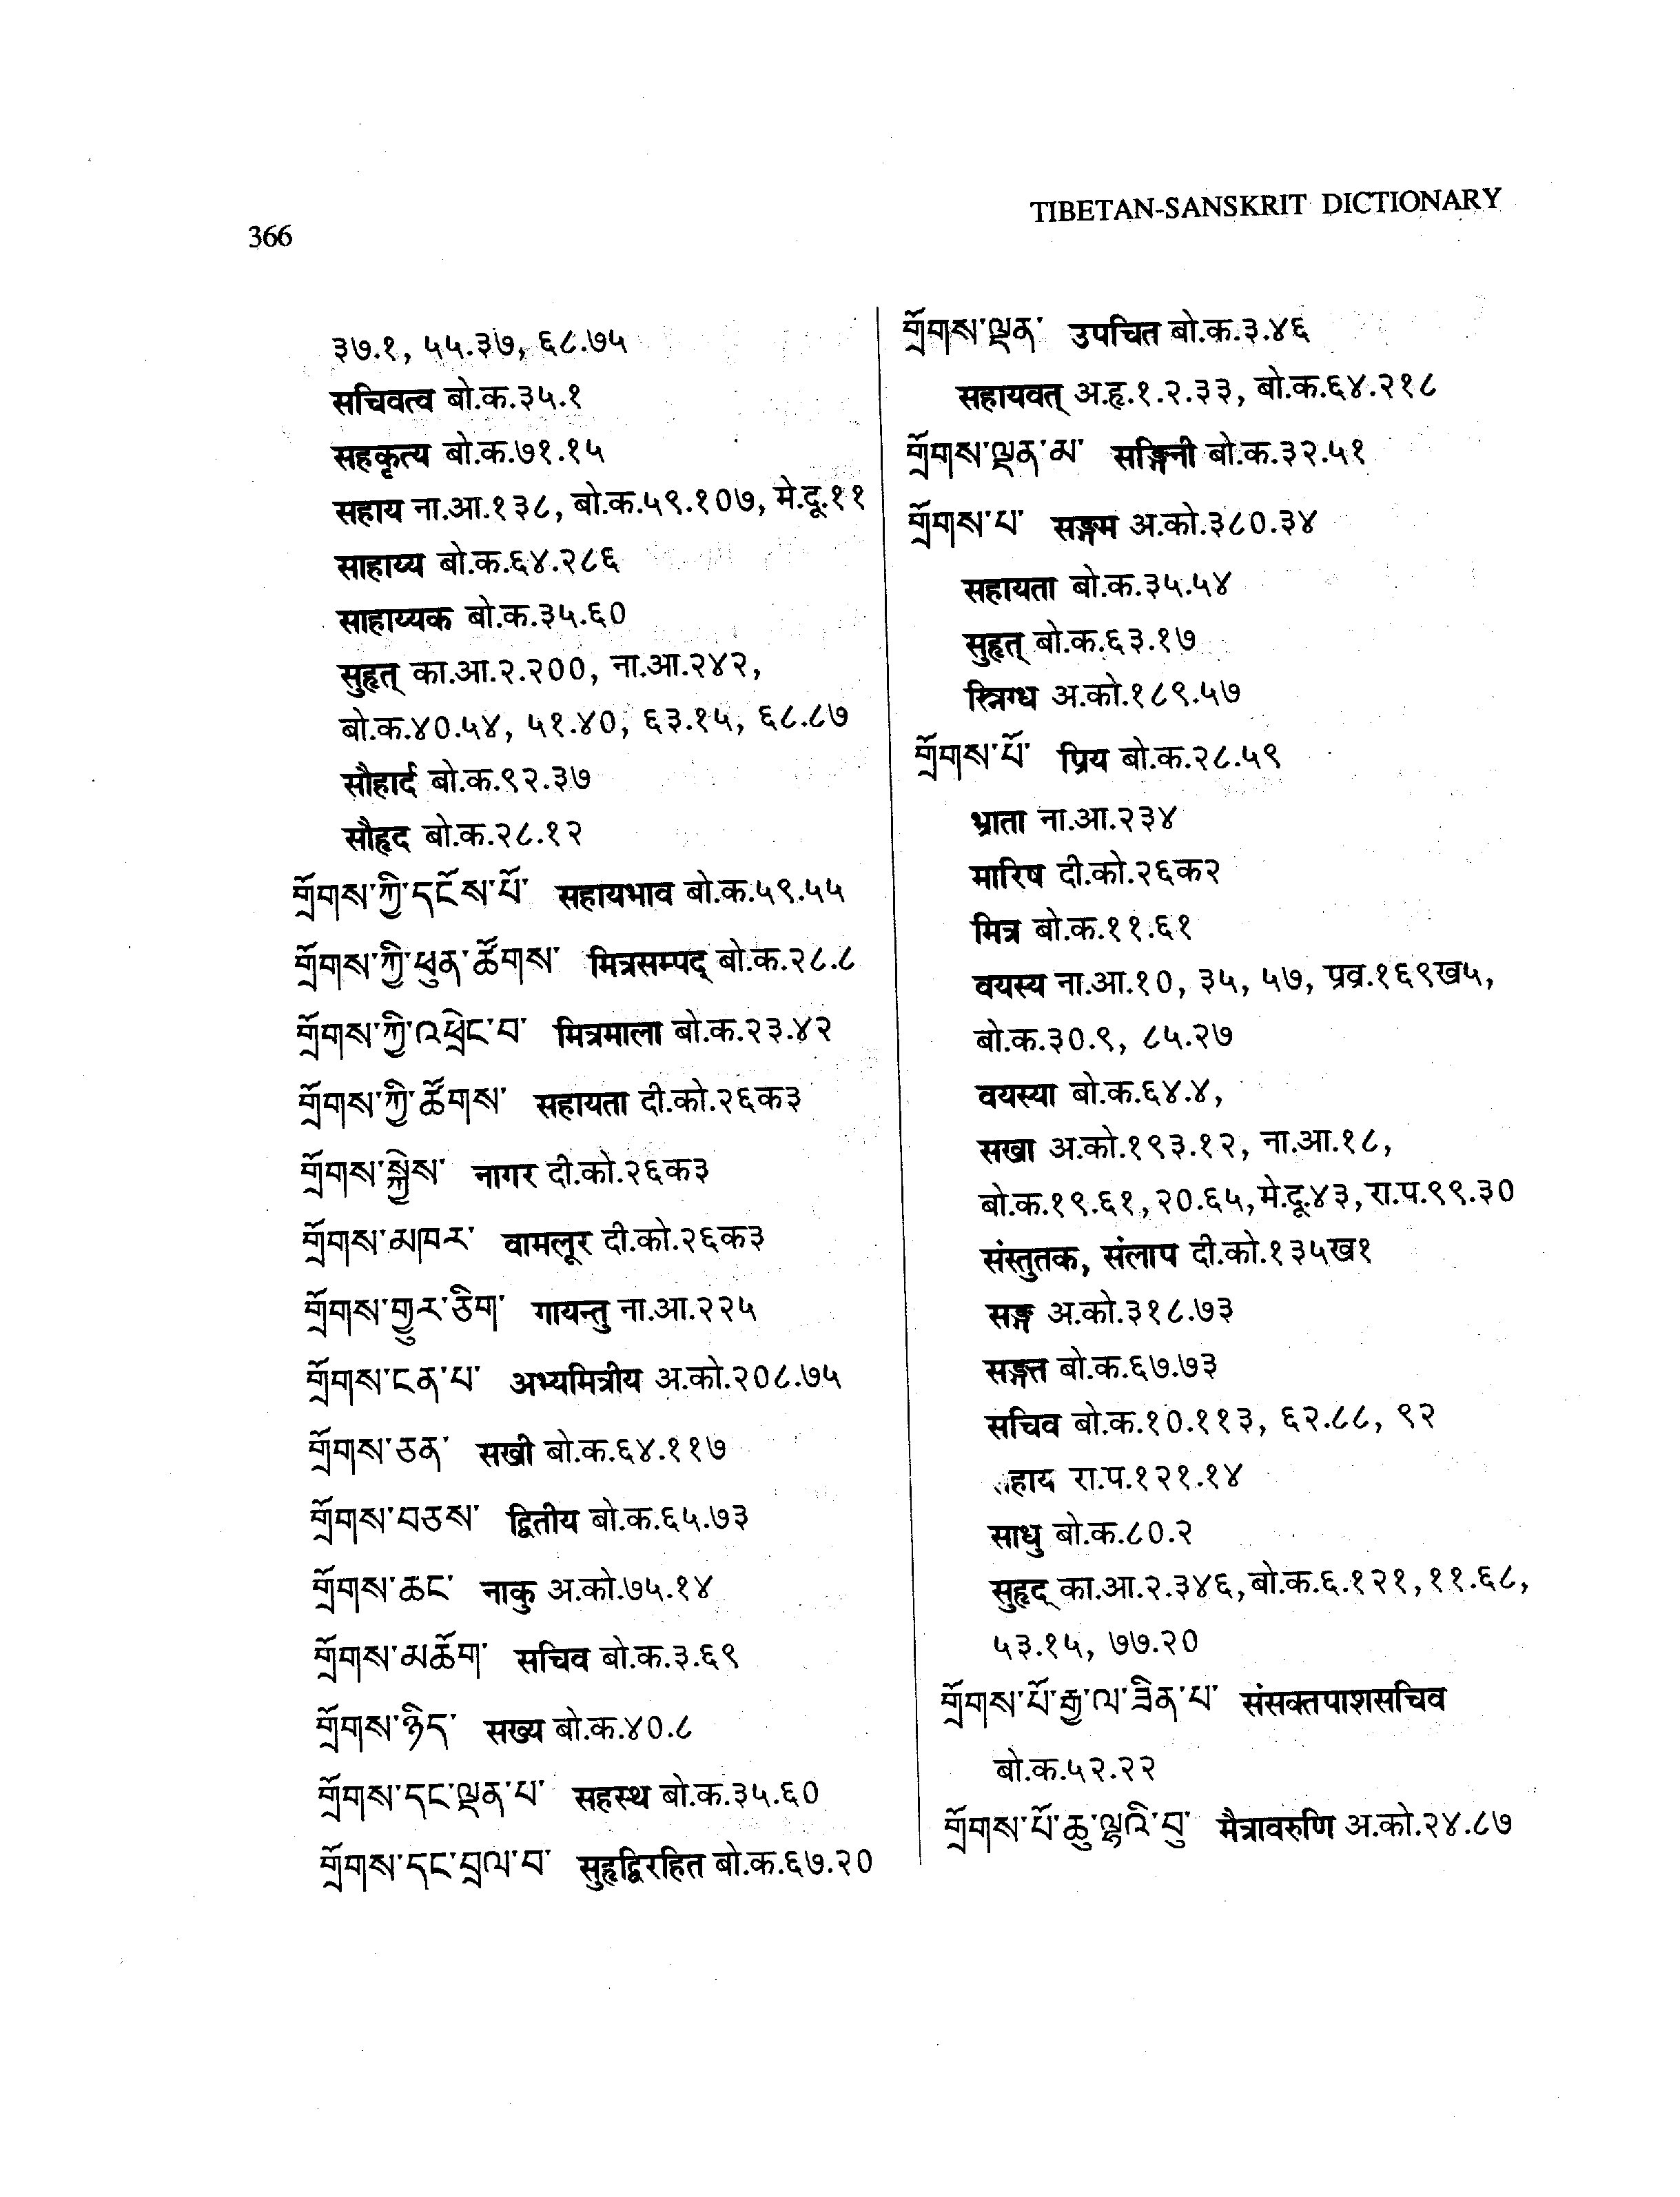 366
TIBETAN-SANSKRIT DICTIONARY
३७.१, ५५.३७, ६८.७५
सचिवत्व बो.क.३५.१
सहकृत्य बो.क.७१.१५
सहाय ना.आ.१३८, बो.क.५९.१०७, मे.दू.११
साहाय्य बो.क.६४.२८६
साहाय्यक बो.क.३५.६०
सुहृत् का.आ.२.२००, ना.आ.२४२,
बो.क.४०.५४, ५१.४०, ६३.१५, ६८.८७
सौहार्द बो.क.९२.३७
सौहृद बो.क.२८.१२
གྲོགས་ཀྱི་དངོས་པོ་ सहायभाव बो.क.५९.५५
གྲོགས་ཀྱི་ཕུན་ཚོགས་ मित्रसम्पद् बो.क.२८.८
གྲོགས་ཀྱི་འཕྲེང་བ་ मित्रमाला बो.क.२३.४२
གྲོགས་ཀྱི་ཚོགས་ सहायता दी.को.२६क३
གྲོགས་སྐྱེས་ नागर दी.को.२६क३
གྲོགས་མཁར་ वामलूर दी.को.२६क३
གྲོགས་གྱུར་ཅིག་ गायन्तु ना.आ.२२५
གྲོགས་ངན་པ་ अभ्यमित्रीय अ.को.२०८.७५
གྲོགས་ཅན་ सखी बो.क.६४.११७
གྲོགས་བཅས་ द्वितीय बो.क.६५.७३
གྲོགས་ཆང་ नाकु अ.को.७५.१४
གྲོགས་མཆོག་ सचिव बो.क.३.६९
གྲོགས་ཉིད་ सख्य बो.क.४०.८
གྲོགས་དང་ལྡན་པ་ सहस्थ बो.क.३५.६०
གྲོགས་དང་བྲལ་བ་ सुहृद्विरहित बो.क.६७.२०
གྲོགས་ལྡན་ उपचित बो.क.३.४६
सहायवत् अ.हृ.१.२.३३, बो.क.६४.२१८
གྲོགས་ལྡན་མ་ सङ्गिनी बो.क.३२.५१
གྲོགས་པ་ सङ्गम अ.को.३८०.३४
सहायता बो.क.३५.५४
सुहृत् बो.क.६३.१७
स्निग्ध अ.को.१८९.५७
གྲོགས་པོ་ प्रिय बो.क.२८.५९
भ्राता ना.आ.२३४
मारिष दी.को.२६क२
मित्र बो.क.११.६१
वयस्य ना.आ.१०, ३५, ५७, प्रव्र.१६९ख५,
बो.क.३०.९, ८५.२७
वयस्या बो.क.६४.४,
सखा अ.को.१९३.१२, ना.आ.१८,
बो.क.१९.६१,२०.६५,मे.दू.४३,रा.प.९९.३०
संस्तुतक, संलाप दी.को.१३५ख१
सङ्ग अ.को.३१८.७३
सङ्गत बो.क.६७.७३
सचिव बो.क.१०.११३, ६२.८८, ९२
हाय रा.प.१२१.१४
साधु बो.क.८०.२
सुहृद् का.आ.२.३४६,बो.क.६.१२१,११.६८,
५३.१५, ७७.२०
གྲོགས་པོ་རྒྱ་ལ་ཟིན་པ་ संसक्तपाशसचिव
बो.क.५२.२२
གྲོགས་པོ་ཆུ་ལྷའི་བུ་ मैत्रावरुणि अ.को.२४.८७